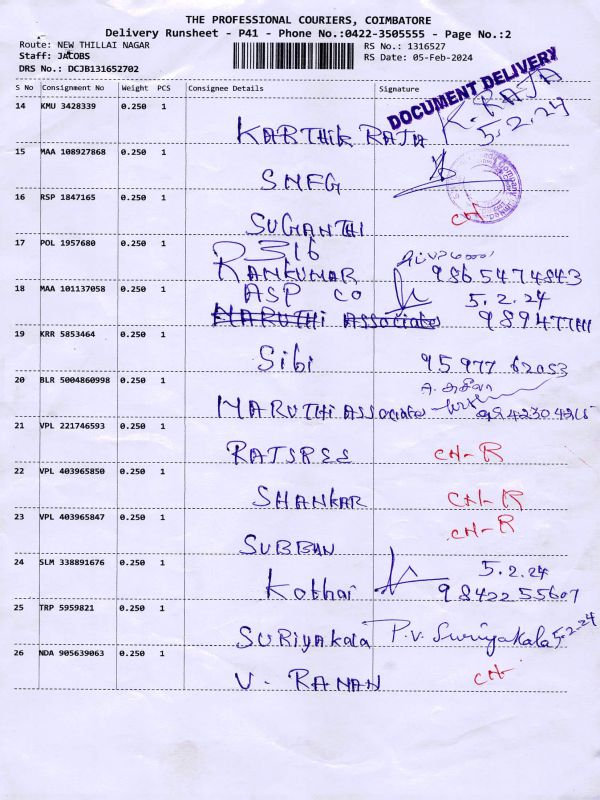 THE PROFESSIONAL COURIERS, COIMBATORE
Delivery Runsheet - P41 - Phone No.:0422-3505555 - Page No.:2
Route: NEW THILLAI NAGAR RS No.: 1316527
Staff: JACOBS RS Date: 05-Feb-2024
DRS No.: DCJB131652702
DOCUMENT DELIVERY
S No Consignment No Weight PCS Consignee Details Signature
14 KMU 3428339 0.250 1
KARTHIK RAJA K. RAJA 5.2.24
15 MAA 108927868 0.250 1
SMFG
16 RSP 1847165 0.250 1
SUGANTHI CH
17 POL 1957680 0.250 1
D 316
RANKUMAR 9865474843
18 MAA 101137058 0.250 1
ASP CO 5.2.24
MARUTHI Associates 989477111
19 KRR 5853464 0.250 1
Sibi 95977 62053
20 BLR 5004860998 0.250 1
MARUTHI ASSociate
21 VPL 221746593 0.250 1
RAJSREE CH-R
22 VPL 403965850 0.250 1
SHANKAR CH-R
23 VPL 403965847 0.250 1
CH-R
SUBBUN
24 SLM 338891676 0.250 1
5.2.24
Kothai 9842255607
25 TRP 5959821 0.250 1
SURiyakala P.V. Suriyakala 5.2.24
26 NDA 905639063 0.250 1
V. RANAN CH